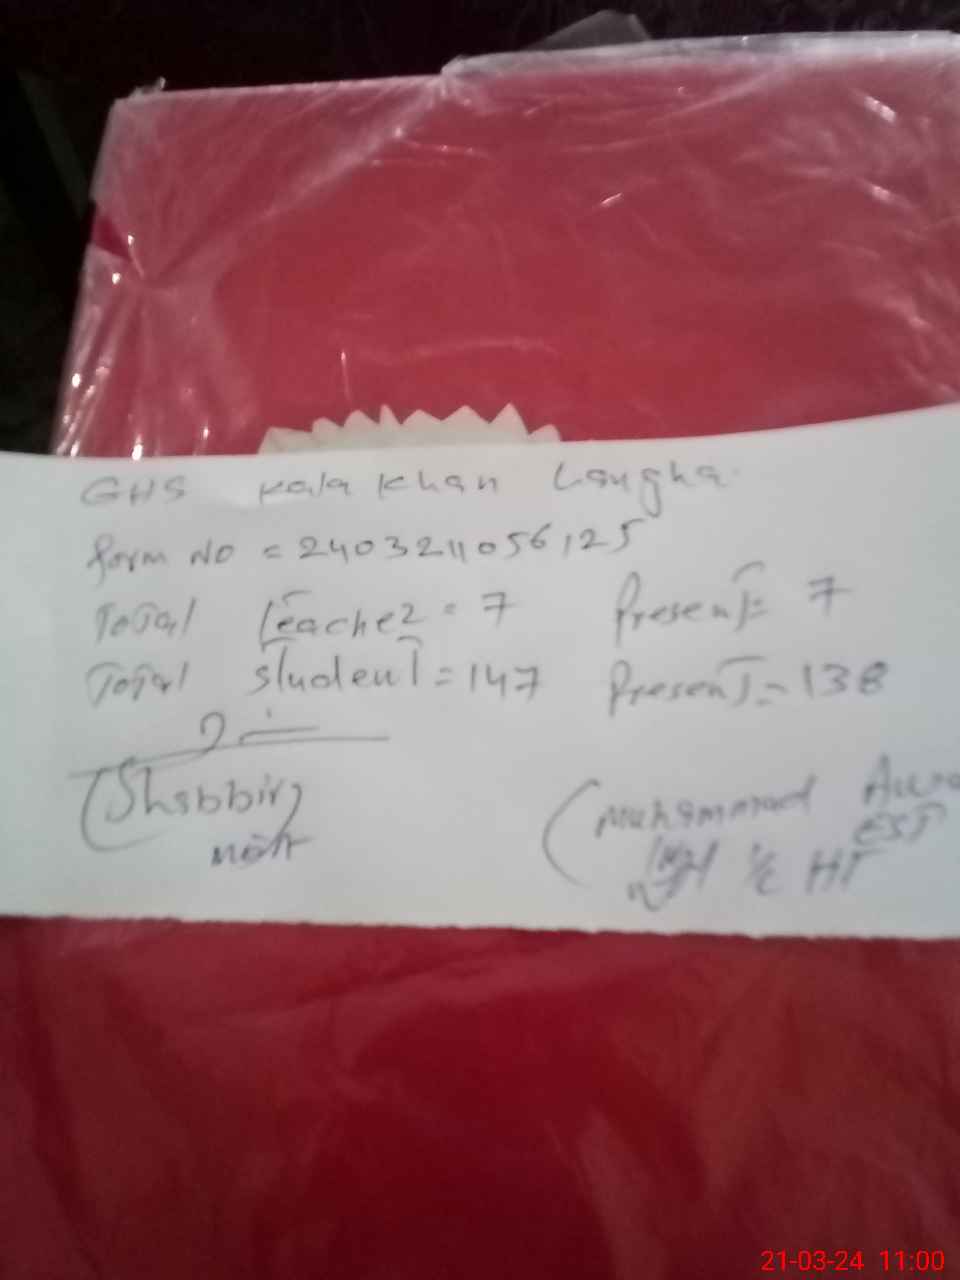 GHS Kala Khan Langha
form No = 2403211056125
Total teacher = 7 Present = 7
Total student = 147 Present = 138
(Shabbir)
(Muhammad
EST
I/C HT
21-03-24 11:00